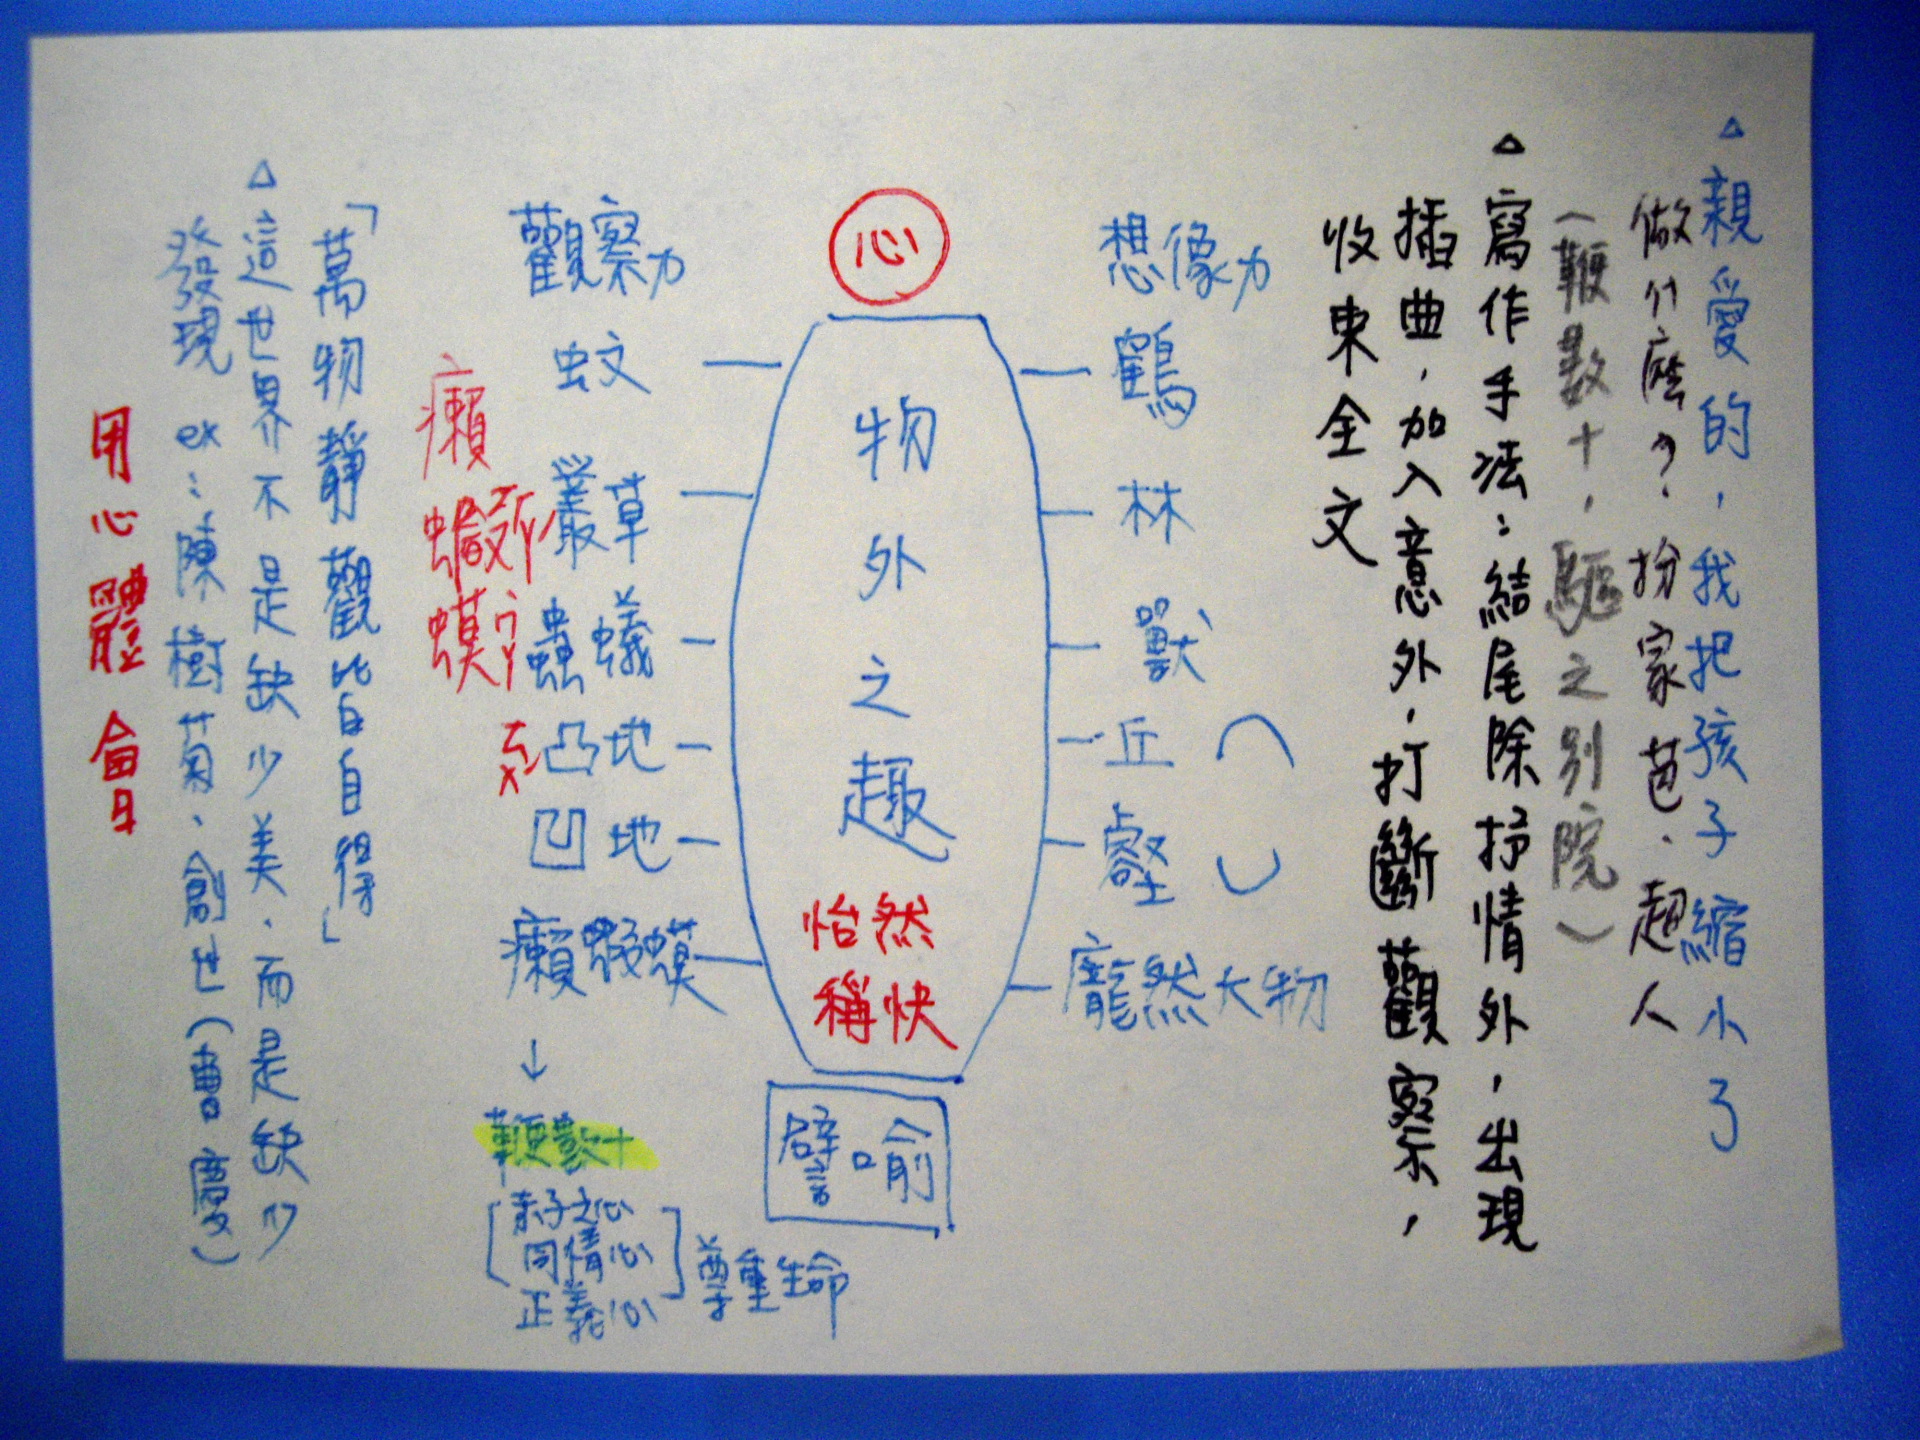 △親愛的，我把孩子縮小了
做什麼？扮家芭、超人
（鞭數十，驅之別院）
△寫作手法：結尾除抒情外，出現
插曲，加入意外，打斷觀察，
收束全文
想像力
鶴
林
獸
丘
壑
龐然大物
心
物外之趣
怡然
稱快
譬喻
觀察力
蚊
叢草
蟲蟻
凸地
凹地
癩蝦蟆
↓
鞭數十
赤子之心
同情心
正義心
尊重生命
癩
蟆
「萬物靜觀皆自得」
△這世界不是缺少美，而是缺少
發現 ex：陳樹菊、創世（曹慶）
用心體會